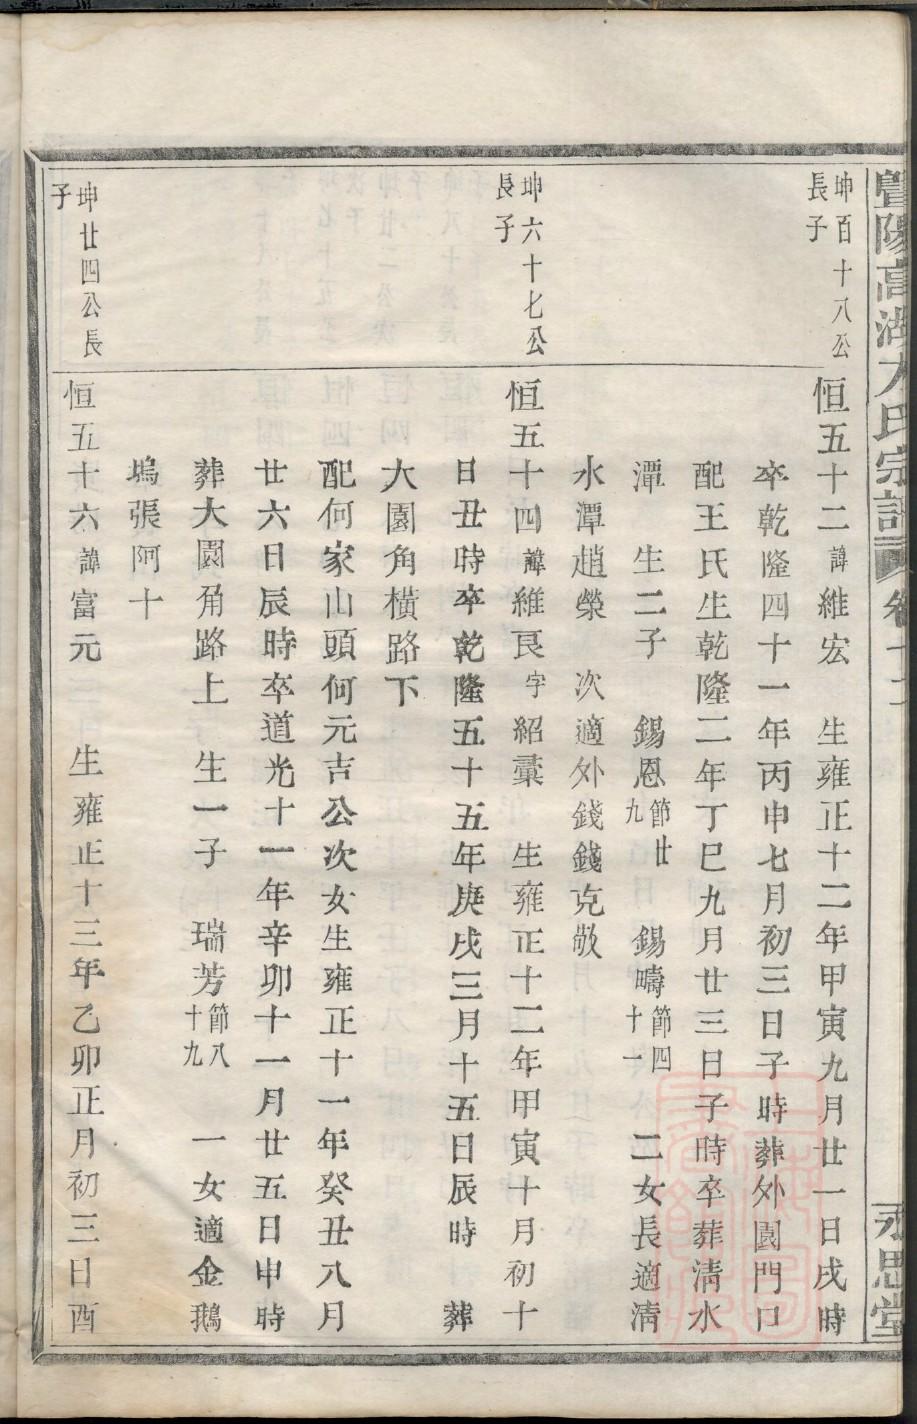 暨陽高湖方氏宗譜 卷十二 永思堂
坤百十八公
長子
恒五十二諱維宏 生雍正十二年甲寅九月廿一日戌時
卒乾隆四十一年丙申七月初三日子時葬外園門口
配王氏生乾隆二年丁巳九月廿三日子時卒葬清水
潭 生二子 錫恩節廿九 錫疇節四十一 二女長適清
水潭趙榮 次適外錢錢克敬
坤六十七公
長子
恒五十四諱維艮字紹橐 生雍正十二年甲寅十月初十
日丑時卒乾隆五十五年庚戌三月十五日辰時 葬
大園角橫路下
配何家山頭何元吉公次女生雍正十一年癸丑八月
廿六日辰時卒道光十一年辛卯十一月廿五日申時
葬大園角路上 生一子 瑞芳節八十九 一女適金鵝
塢張阿十
坤廿四公長
子
恒五十六諱富元 生雍正十三年乙卯正月初三日酉